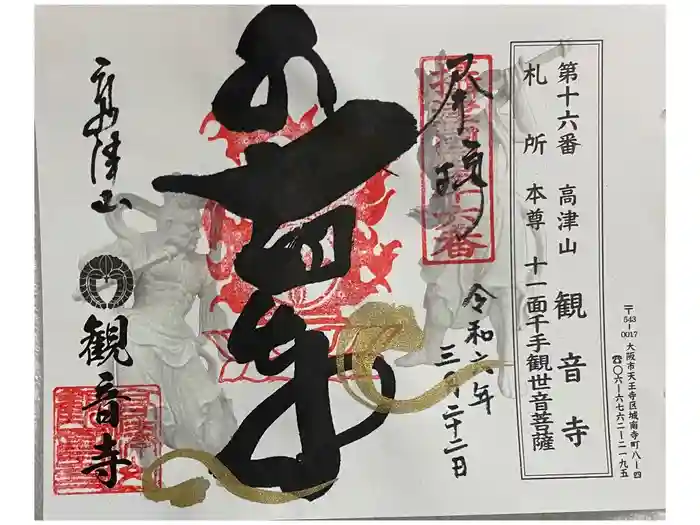 第十六番 高津山 観音寺
札所 本尊 十一面千手観世音菩薩
〒543-0017 大阪市天王寺区城南寺町八ー四
☎〇六ー六七六二ー二一九五
奉拝
令和六年
三月二十二日
高津山
観音寺